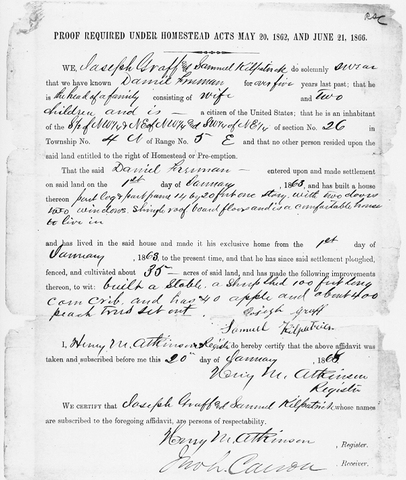 PROOF REQUIRED UNDER HOMESTEAD ACTS MAY 20, 1862, AND JUNE 21, 1866.
WE, Joseph Graff & Samuel Kilpatrick do solemnly swear
that we have known Daniel Freeman for over five years last past; that he
is the head of a family consisting of wife and two
children and is — a citizen of the United States; that he is an inhabitant
of the S½ of NW¼ & NE of NW¼ & SW¼ of NE¼ of section No. 26
in Township No. 4 N of Range No. 5 E and that no other person resided upon the
said land entitled to the right of Homestead or Pre-emption.
That the said Daniel Freeman — entered upon and made settlement
on said land on the 1st day of January, 1863, and has built a house
thereon part log & part frame 14 by 20 feet one story, with two doors
two windows, shingle roof board floors and is a comfortable house
to live in
and has lived in the said house and made it his exclusive home from the 1st day of
January, 1863, to the present time, and that he has since said settlement ploughed,
fenced, and cultivated about 35 — acres of said land, and has made the following improvements
thereon, to wit: built a Stable, a shed 100 feet long
corn crib, and has 40 apple and about 400
peach trees set out.
Joseph Graff
Samuel Kilpatrick
I, Henry M. Atkinson Register do hereby certify that the above affidavit was
taken and subscribed before me this 20 day of January, 1868
Henry M. Atkinson
Register
WE CERTIFY that Joseph Graff & Samuel Kilpatrick whose names
are subscribed to the foregoing affidavit, are persons of respectability.
Henry M. Atkinson, Register.
Jno L. Carson, Receiver.